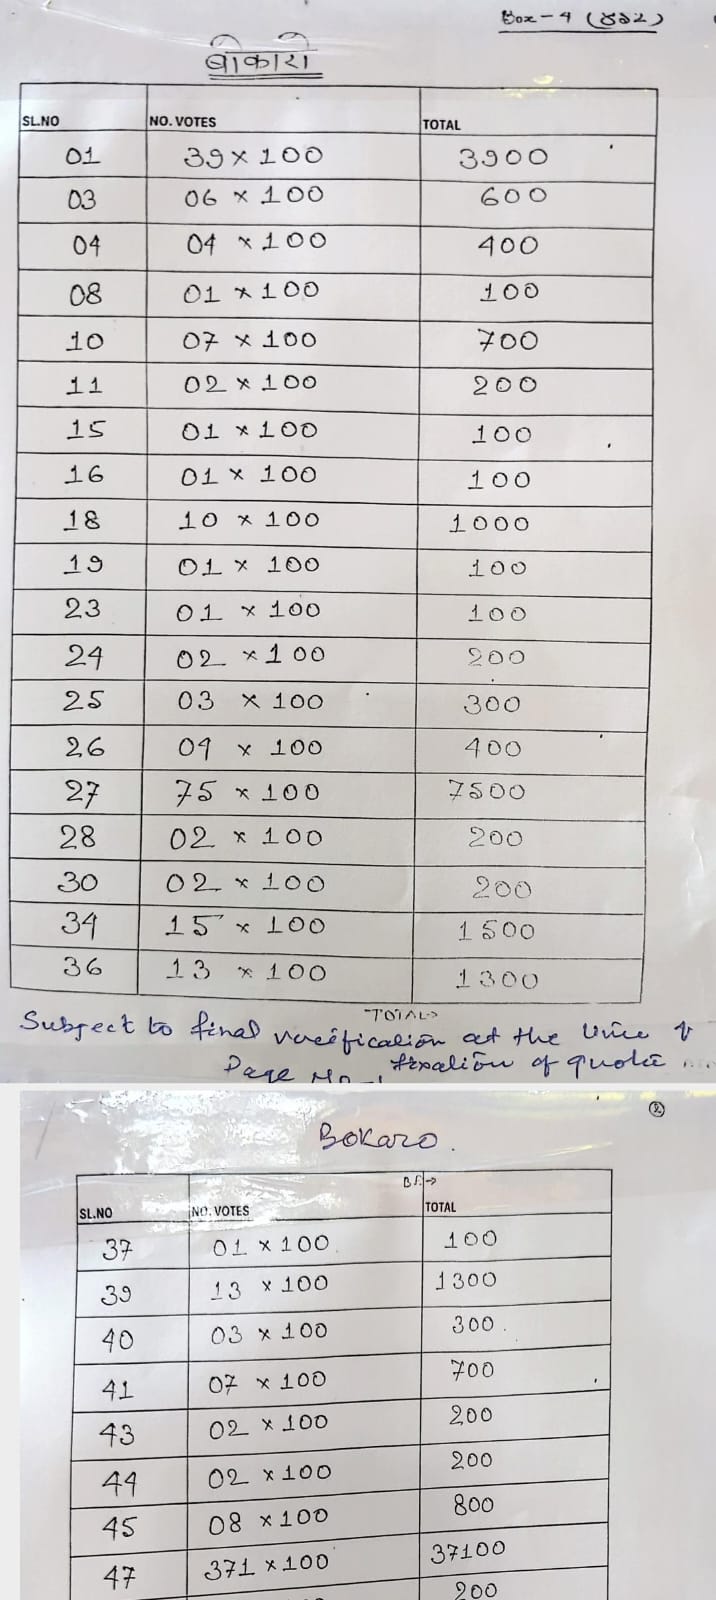 Box - 4 (
बोकारो
SL.NO NO. VOTES TOTAL
01 39 × 100 3900
03 06 × 100 600
04 04 × 100 400
08 01 × 100 100
10 07 × 100 700
11 02 × 100 200
15 01 × 100 100
16 01 × 100 100
18 10 × 100 1000
19 01 × 100 100
23 01 × 100 100
24 02 × 100 200
25 03 × 100 300
26 04 × 100 400
27 75 × 100 7500
28 02 × 100 200
30 02 × 100 200
34 15 × 100 1500
36 13 × 100 1300
TOTAL→
Subject to final verification at the time of
fixation of quota
Page No - 1
2
Bokaro.
B F.→
SL.NO NO. VOTES TOTAL
37 01 × 100 100
39 13 × 100 1300
40 03 × 100 300
41 07 × 100 700
43 02 × 100 200
44 02 × 100 200
45 08 × 100 800
47 371 × 100 37100
200